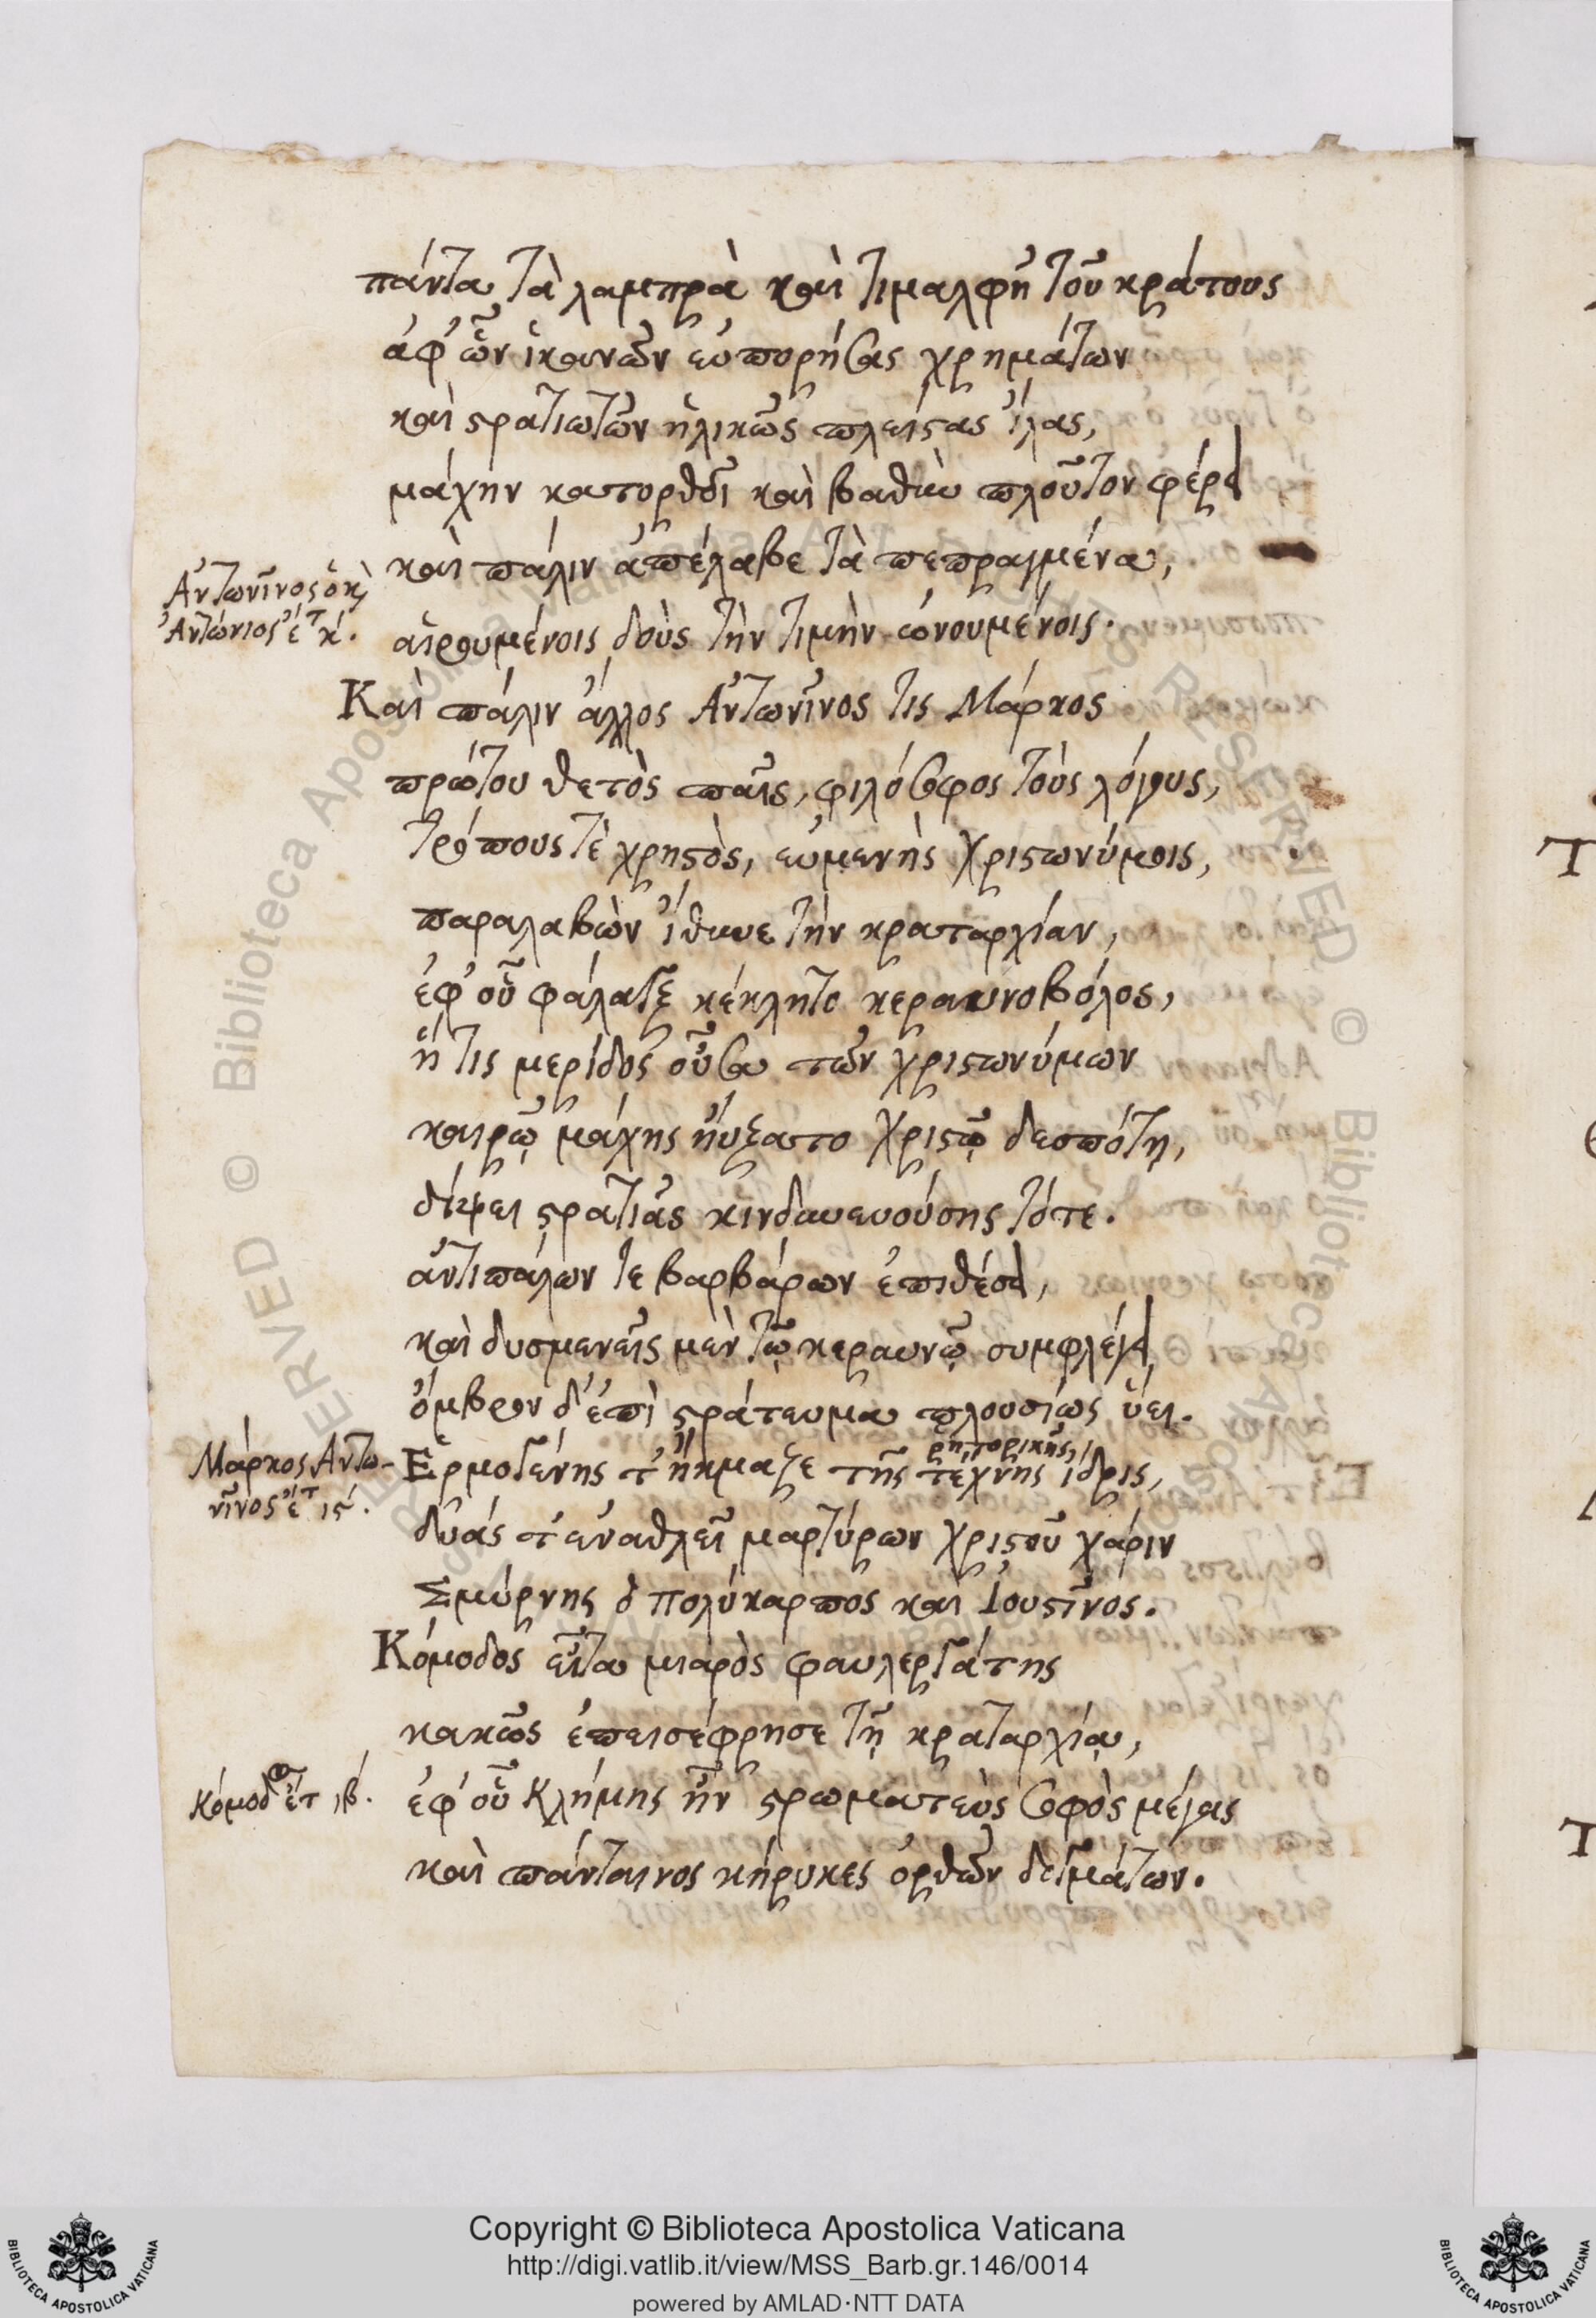 πάντα τὰ λαμπρὰ καὶ τιμαλφῆ τοῦ κράτους
ἀφ' ὧν ἱκανῶν εὐπορήσας χρημάτων
καὶ στρατιωτῶν ἡλικῶς πλείστας ἴλας,
μάχην κατορθοῖ καὶ βαθὺν πλοῦτον φέρει
καὶ πάλιν ἀπέλαβε τὰ πεπραγμένα,
Ἀντωνῖνος ὁ κὶ
Ἀντώνιος ἔτ κ'.
αἱρουμένοις δοὺς τὴν τιμὴν ὠνουμένοις.
Καὶ πάλιν ἄλλος Ἀντωνῖνος τις Μάρκος
πρώτου θετὸς παῖς, φιλόσοφος τοὺς λόγους,
τρόπους τὲ χρηστὸς, εὐμενὴς χριστωνύμοις,
παραλαβὼν ἴθυνε τὴν κραταρχίαν,
ἐφ' οὗ φάλαγξ κέκλητο κεραυνοβόλος,
ἥ τις μερίδος οὖσα τῶν χριστωνύμων
καιρῷ μάχης ηὔξατο Χριστῷ δεσπότῃ,
δίψει στρατιᾶς κινδυνευούσης τότε.
ἀντιπάλων τε βαρβάρων ἐπιθέσει,
καὶ δυσμενεῖς μὲν τῷ κεραυνῷ συμφλέγει
ὄμβρον δ' ἐπὶ στράτευμα πλουσίως ὕει.
Μάρκος Ἀντω-
νῖνος ἔτ ις'.
Ἑρμογένης τ' ἤκμαζε τῆς τέχνης ἴδρις,
ῥητορικῆς,
δυάς τ' ἐναθλεῖ μαρτύρων Χριστοῦ χάριν
Σμύρνης ὁ πολύκαρπος καὶ Ἰουστῖνος.
Κόμοδος εἶτα μιαρὸς φαυλεργάτης
κακῶς ἐπεισέφρησε τῇ κραταρχίᾳ,
Κόμοδος ἔτ ιβ'.
ἐφ' οὗ Κλήμης ἦν στρωματεὺς σοφὸς μέγας
καὶ πάνταινος κήρυκες ὀρθῶν δογμάτων.
Copyright © Biblioteca Apostolica Vaticana
http://digi.vatlib.it/view/MSS_Barb.gr.146/0014
powered by AMLAD·NTT DATA